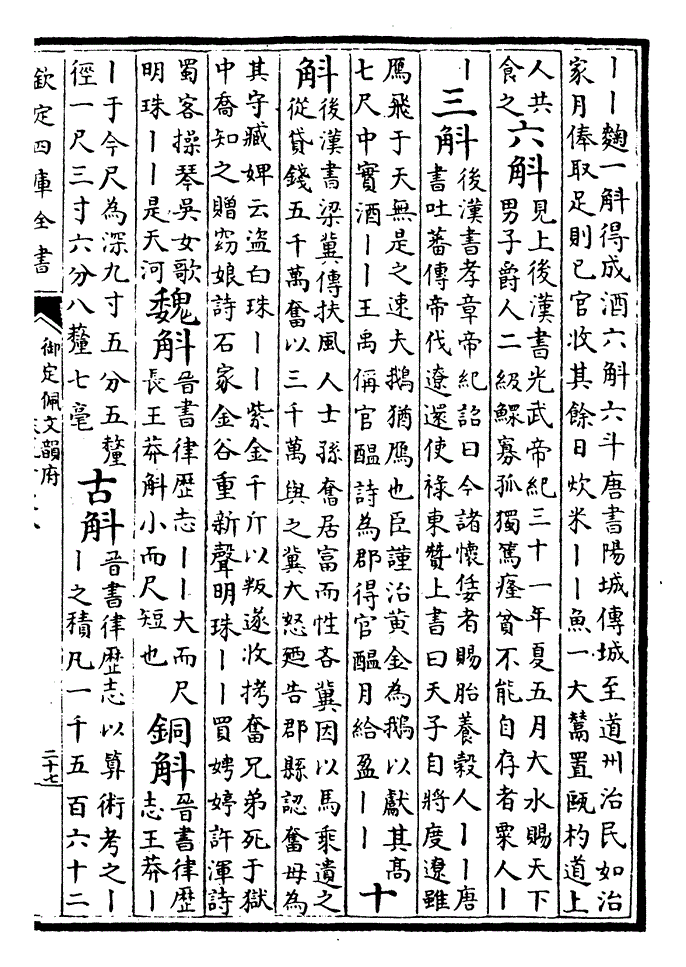 丨丨麴一斛得成酒六斛六斗唐書陽城傳城至道州治民如治
家月俸取足則已官收其餘日炊米丨丨魚一大鬵置甌杓道上
人共
食之
六斛
見上後漢書光武帝紀三十一年夏五月大水賜天下
男子爵人二級鰥寡孤獨篤癃貧不能自存者粟人丨
丨
三斛
後漢書孝章帝紀詔曰今諸懷倭者賜胎養穀人丨丨唐
書吐蕃傳帝代遼還使祿東贊上書曰天子自將度遼雖
鴈飛于天無是之速夫鵝猶鴈也臣謹治黃金為鵝以獻其高
七尺中實酒丨丨王禹偁官醖詩為郡得官醖月給盈丨丨
十
斛
後漢書梁冀傳扶風人士孫奮居富而性吝冀因以馬乘遺之
從貸錢五千萬奮以三千萬與之冀大怒廼告郡縣認奮母為
其守臧婢云盜白珠丨丨紫金千斤以叛遂收拷奮兄弟死于獄
中喬知之贈窈娘詩石家金谷重新聲明珠丨丨買娉婷許渾詩
蜀客操琴吳女歌
明珠丨丨是天河
魏斛
晉書律歴志丨丨大而尺
長王莽斛小而尺短也
銅斛
晉書律歴
志王莽丨
丨于今尺為深九寸五分五釐
徑一尺三寸六分八釐七毫
古斛
晉書律歴志以算術考之丨
丨之積凡一千五百六十二
欽定四庫全書
御定佩文韻府
二十七